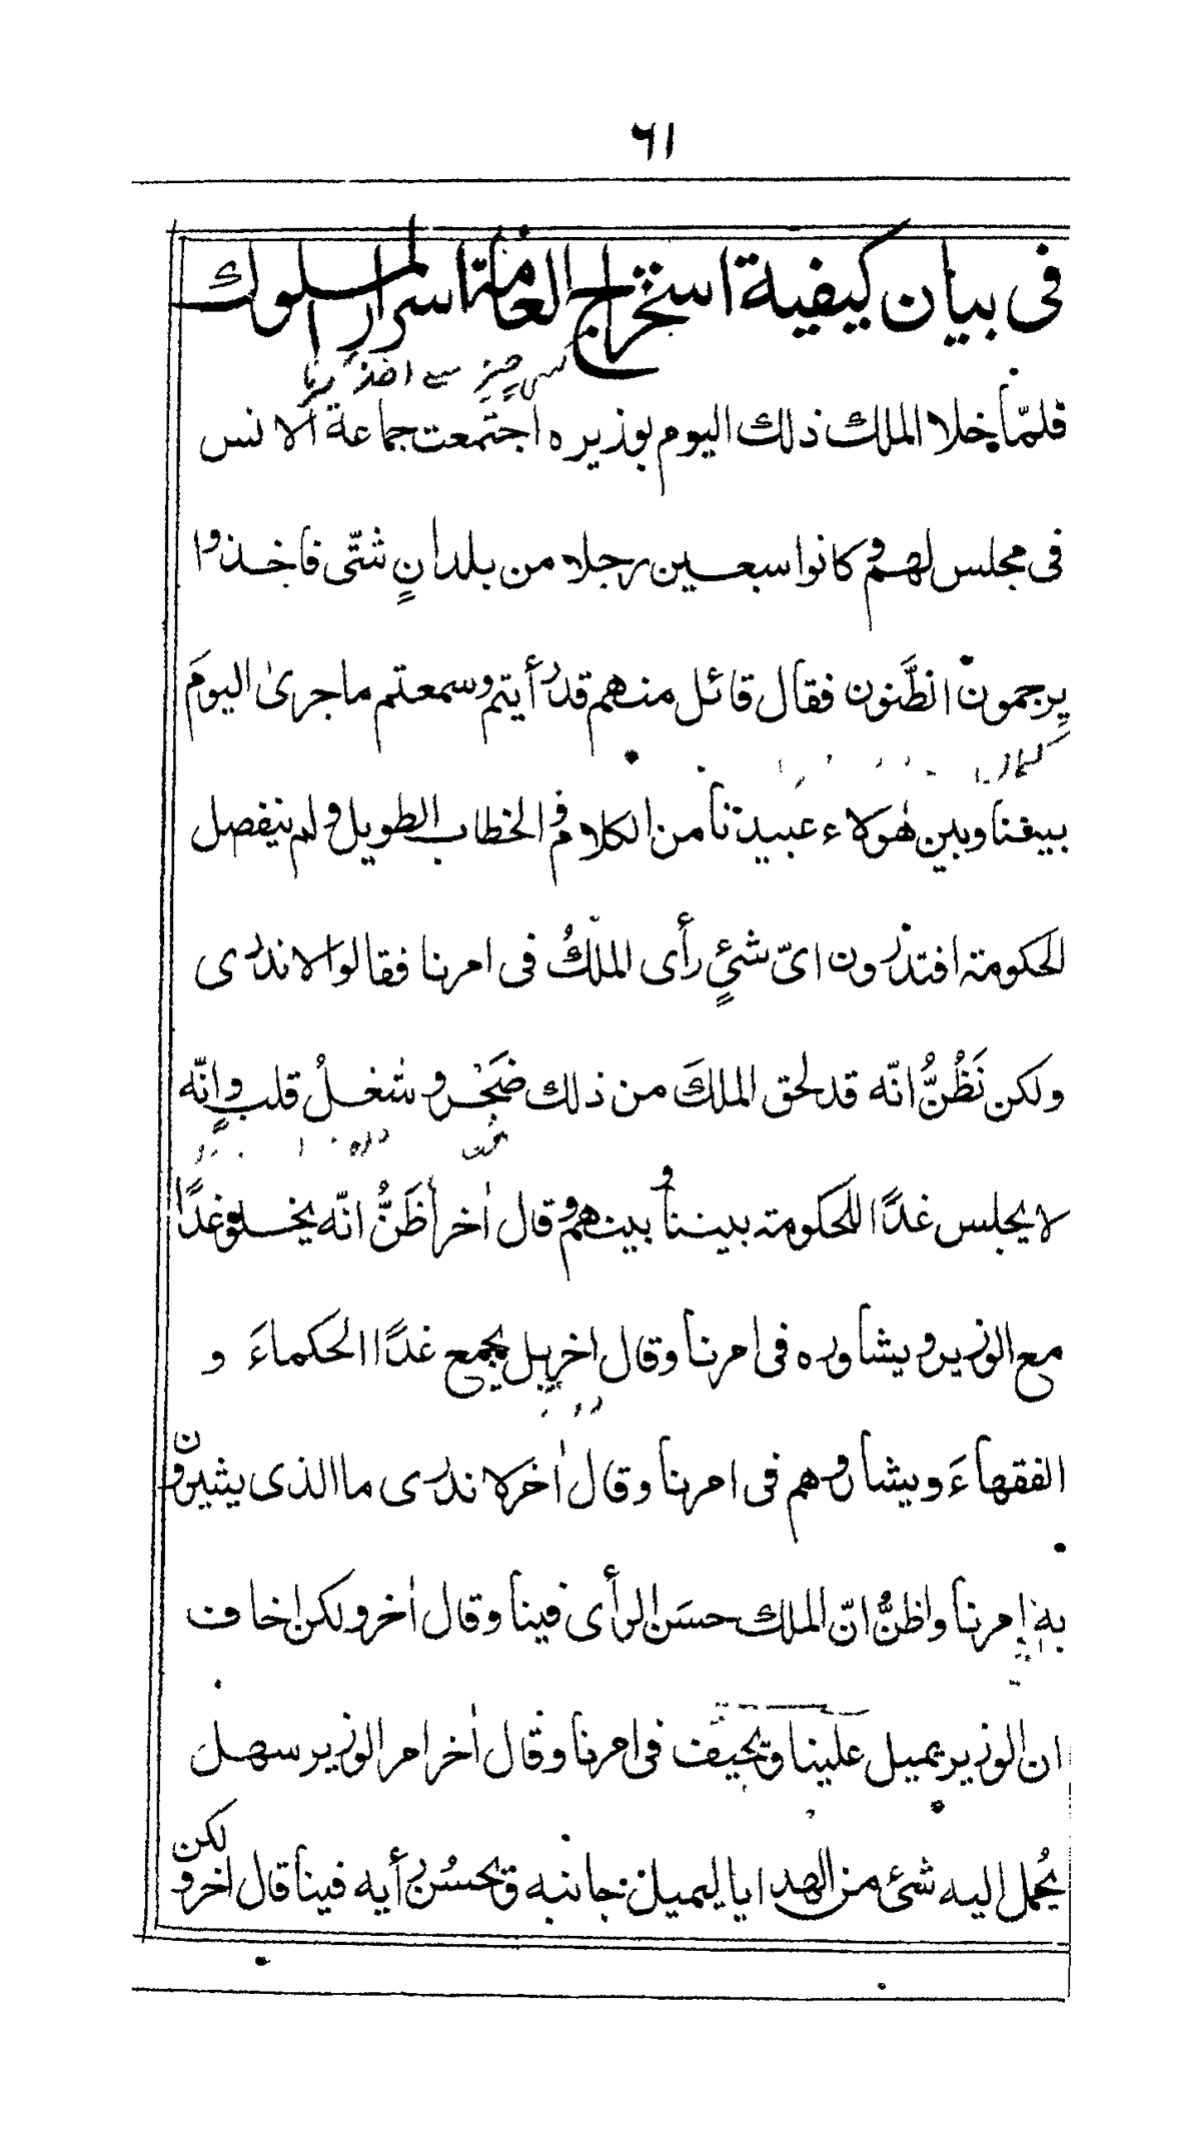 ٦١
فی بیان کیفیة استخراج العامة اسرار الملوك
کسی چیز سے اخذ کرنا
فلمّا خلا الملك ذلك الیوم بوزیره اجتمعت جماعة الانس
فی مجلس لهم وکانوا سبعین رجلا من بلدانٍ شتّی فاخذوا
یرجمون الظّنون فقال قائل منهم قد رأیتم وسمعتم ما جریٰ الیومَ
بیننا وبین هٰؤلاء عبیدنا من الکلام والخطاب الطویل ولم ینفصل
الحکومة افتدرون ایّ شئٍ رأی الملكُ فی امرنا فقالوا لا ندری
ولکن نَظُنُّ انّه قد لحق الملكَ من ذلك ضَجْر وشغلُ قلب وانّه
لا یجلس غدًا للحکومة بیننا وبینهم وقال اٰخر أظَنُّ انّه یخلو غدًا
مع الوزیر ویشاوره فی امرنا وقال اخر بل یجمع غدًا الحکماءَ و
الفقهاءَ ویشاورهم فی امرنا وقال اٰخر لا ندری ما الذی یشیرون
به امرنا واظنُّ انّ الملك حسَن الرأی فینا وقال اٰخر ولکن اخاف
ان الوزیر یمیل علینا ویحیف فی امرنا وقال اٰخر امر الوزیر سهل
یُحمل الیه شئ من الهدایا لیمیل جانبه ویحسُن رأیه فینا قال اخر ولکن